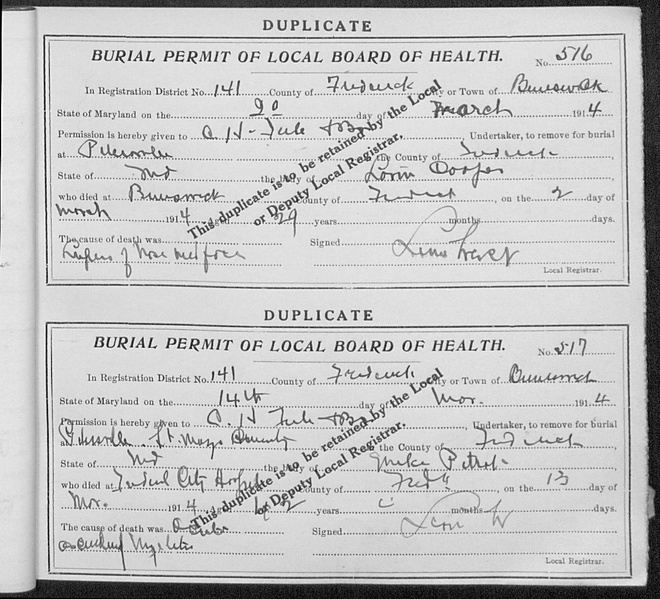 DUPLICATE
BURIAL PERMIT OF LOCAL BOARD OF HEALTH.
No. 516
In Registration District No. 141 County of Frederick City or Town of Brunswick
State of Maryland on the day of March 1914
Permission is hereby given to C. H. Undertaker, to remove for burial
at the County of Frederick
State of Md the body of Cooper
who died at Brunswick County of Fredrick, on the 2 day of
March 1914 aged 29 years months days.
The cause of death was Signed
Local Registrar.
This duplicate is to be retained by the Local
or Deputy Local Registrar.
DUPLICATE
BURIAL PERMIT OF LOCAL BOARD OF HEALTH.
No. 517
In Registration District No. 141 County of Frederick City or Town of Brunswick
State of Maryland on the 14th day of Mar. 1914
Permission is hereby given to C. H. Undertaker, to remove for burial
at St. Marys Cemetery the County of Fredrick
State of Md the body of
who died at City County of Fredk, on the 13 day of
Mar. 1914 years months days.
The cause of death was Signed
ascending Myelitis
Local Registrar.
This duplicate is to be retained by the Local
or Deputy Local Registrar.